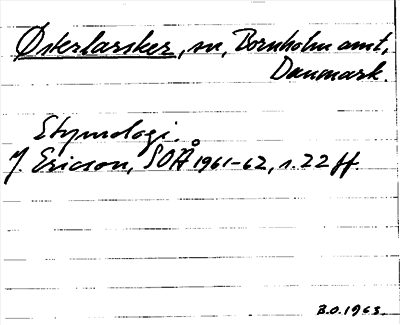 Østerlarsker, sn, Bornholm amt,
Danmark.
Etymologi.
J. Ericson, SOÅ 1961-62, s. 22 ff.
B.O. 1963.